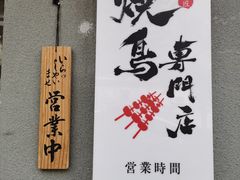 いらっしゃいませ
営業中
焼鳥
専門店
営業時間